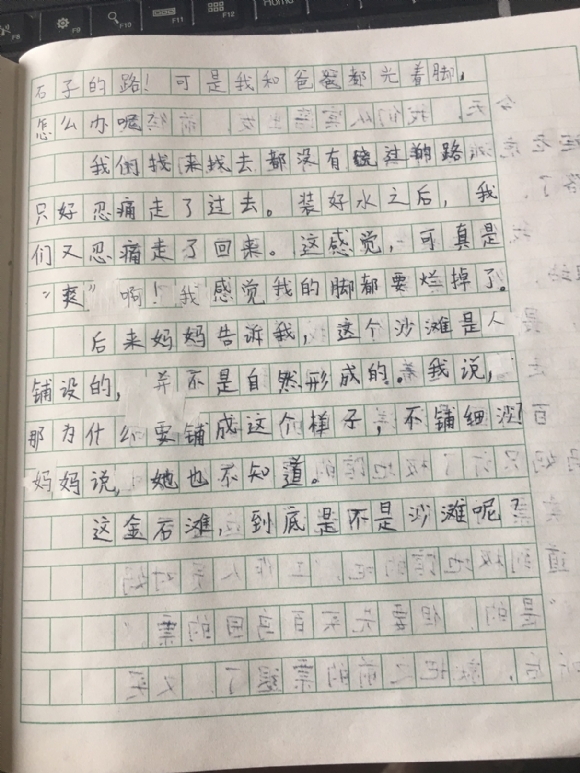 石子的路！可是我和爸爸都光着脚，
怎么办呢
我们找来找去都没有绕过的路
只好忍痛走了过去。装好水之后，我
们又忍痛走了回来。这感觉，可真是
“爽”啊！我感觉我的脚都要烂掉了。
后来妈妈告诉我，这个沙滩是人
铺设的，并不是自然形成的。我说，
那为什么要铺成这个样子，不铺细沙？
妈妈说，她也不知道。
这金石滩，到底是不是沙滩呢？